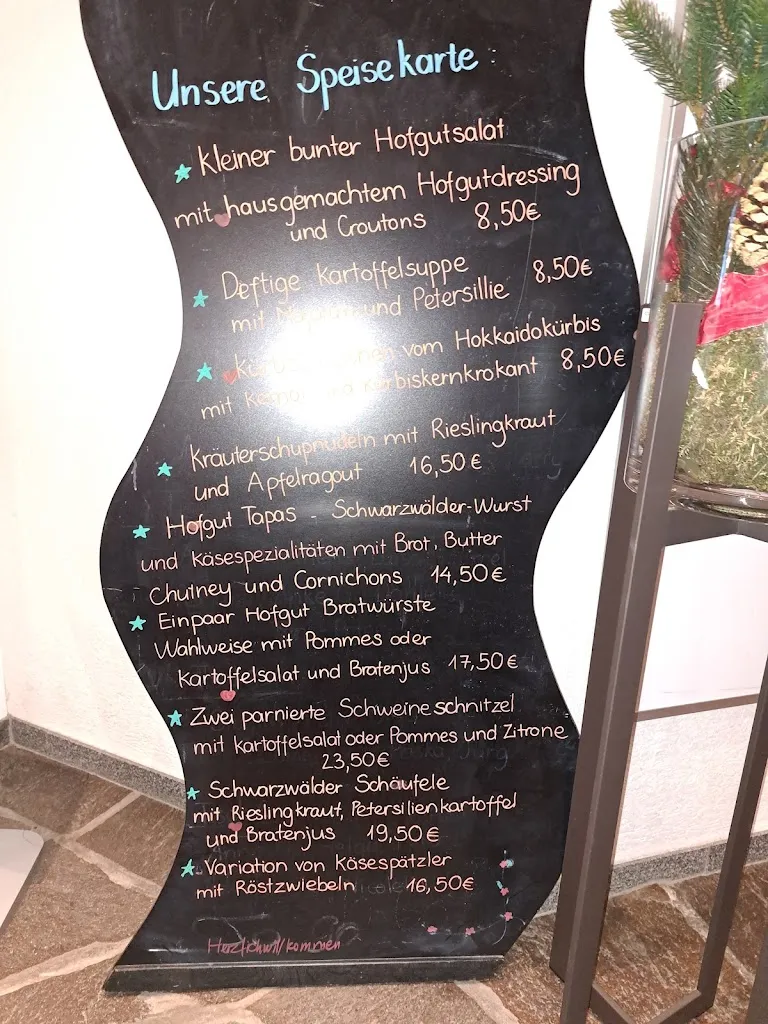 Unsere Speisekarte
Kleiner bunter Hofgutsalat
mit hausgemachtem Hofgutdressing
und Croutons 8,50€
Deftige Kartoffelsuppe 8,50€
mit und Petersillie
vom Hokkaidokürbis
mit Kürbiskernkrokant 8,50€
Kräuterschupfnudeln mit Rieslingkraut
und Apfelragout 16,50€
Hofgut Tapas - Schwarzwälder-Wurst
und Käsespezialitäten mit Brot, Butter
Chutney und Cornichons 14,50€
Ein paar Hofgut Bratwürste
Wahlweise mit Pommes oder
Kartoffelsalat und Bratenjus 17,50€
Zwei parnierte Schweineschnitzel
mit Kartoffelsalat oder Pommes und Zitrone
23,50€
Schwarzwälder Schäufele
mit Rieslingkraut, Petersilienkartoffel
und Bratenjus 19,50€
Variation von Käsespätzler
mit Röstzwiebeln 16,50€
Herzlich willkommen